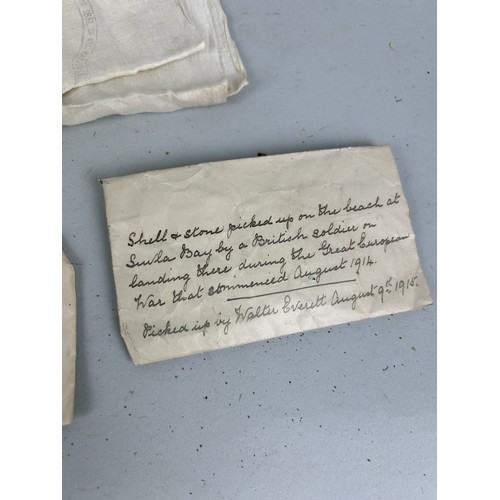 Shell & stone picked up on the beach at
Suvla Bay by a British soldier on
landing there during the Great European
War that commenced August 1914.
Picked up by Walter Everett August 9th 1915.